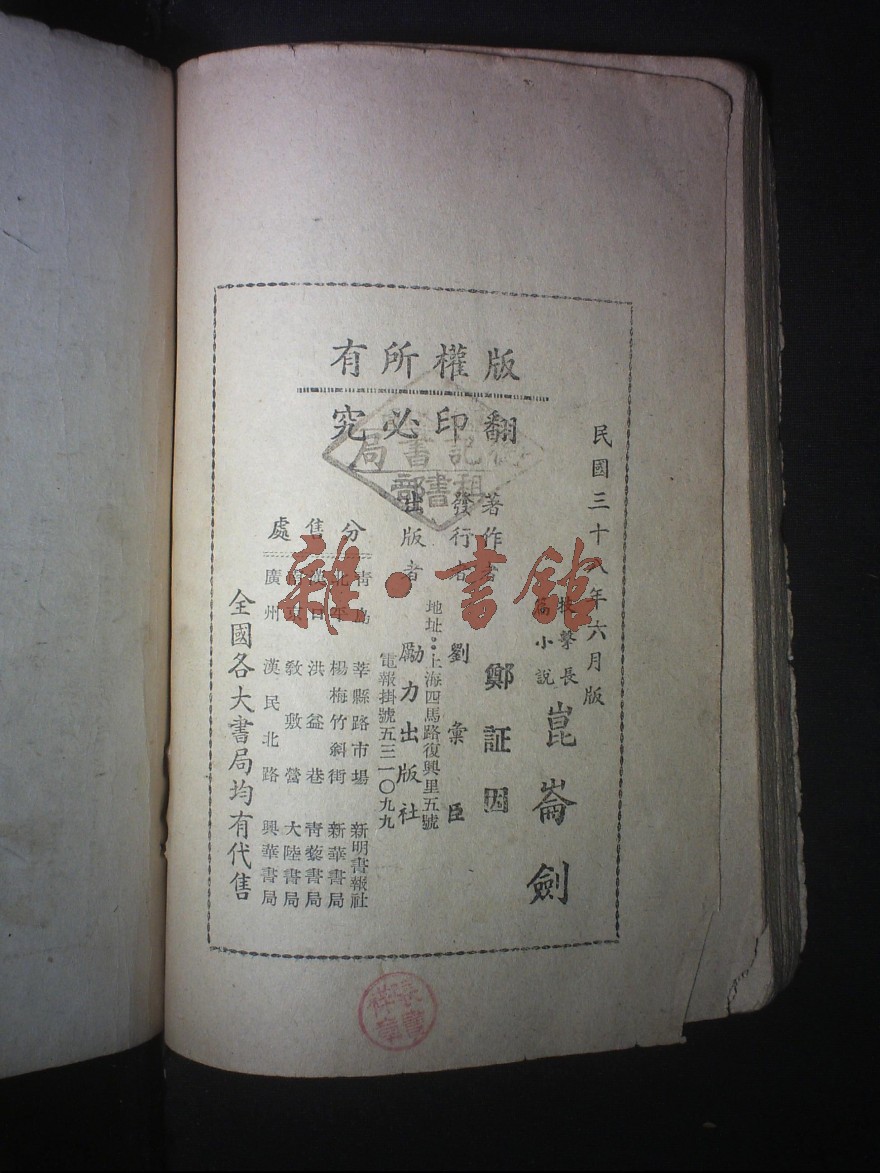 版權所有
翻印必究
民國三十八年六月版
技擊長篇小說
崑崙劍
著作者 鄭証因
發行者 劉彙臣
出版者 勵力出版社
地址：上海四馬路復興里五號
電報掛號五三一〇九九
分售處
青島 莘縣路市場 新明書報社
北平 楊梅竹斜街 新華書局
漢口 洪益巷 青藜書局
南京 敎敷營 大陸書局
廣州 漢民北路 興華書局
全國各大書局均有代售
記書局
租書部
雜·書館